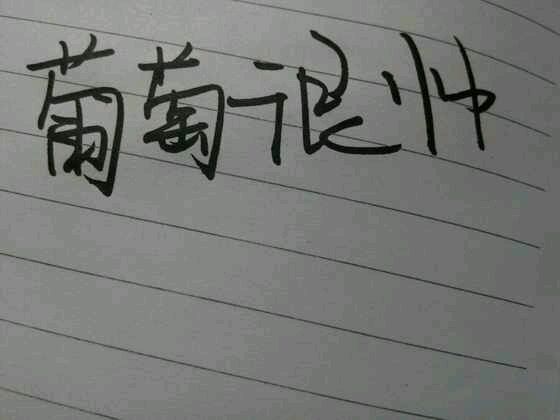 葡萄很帅